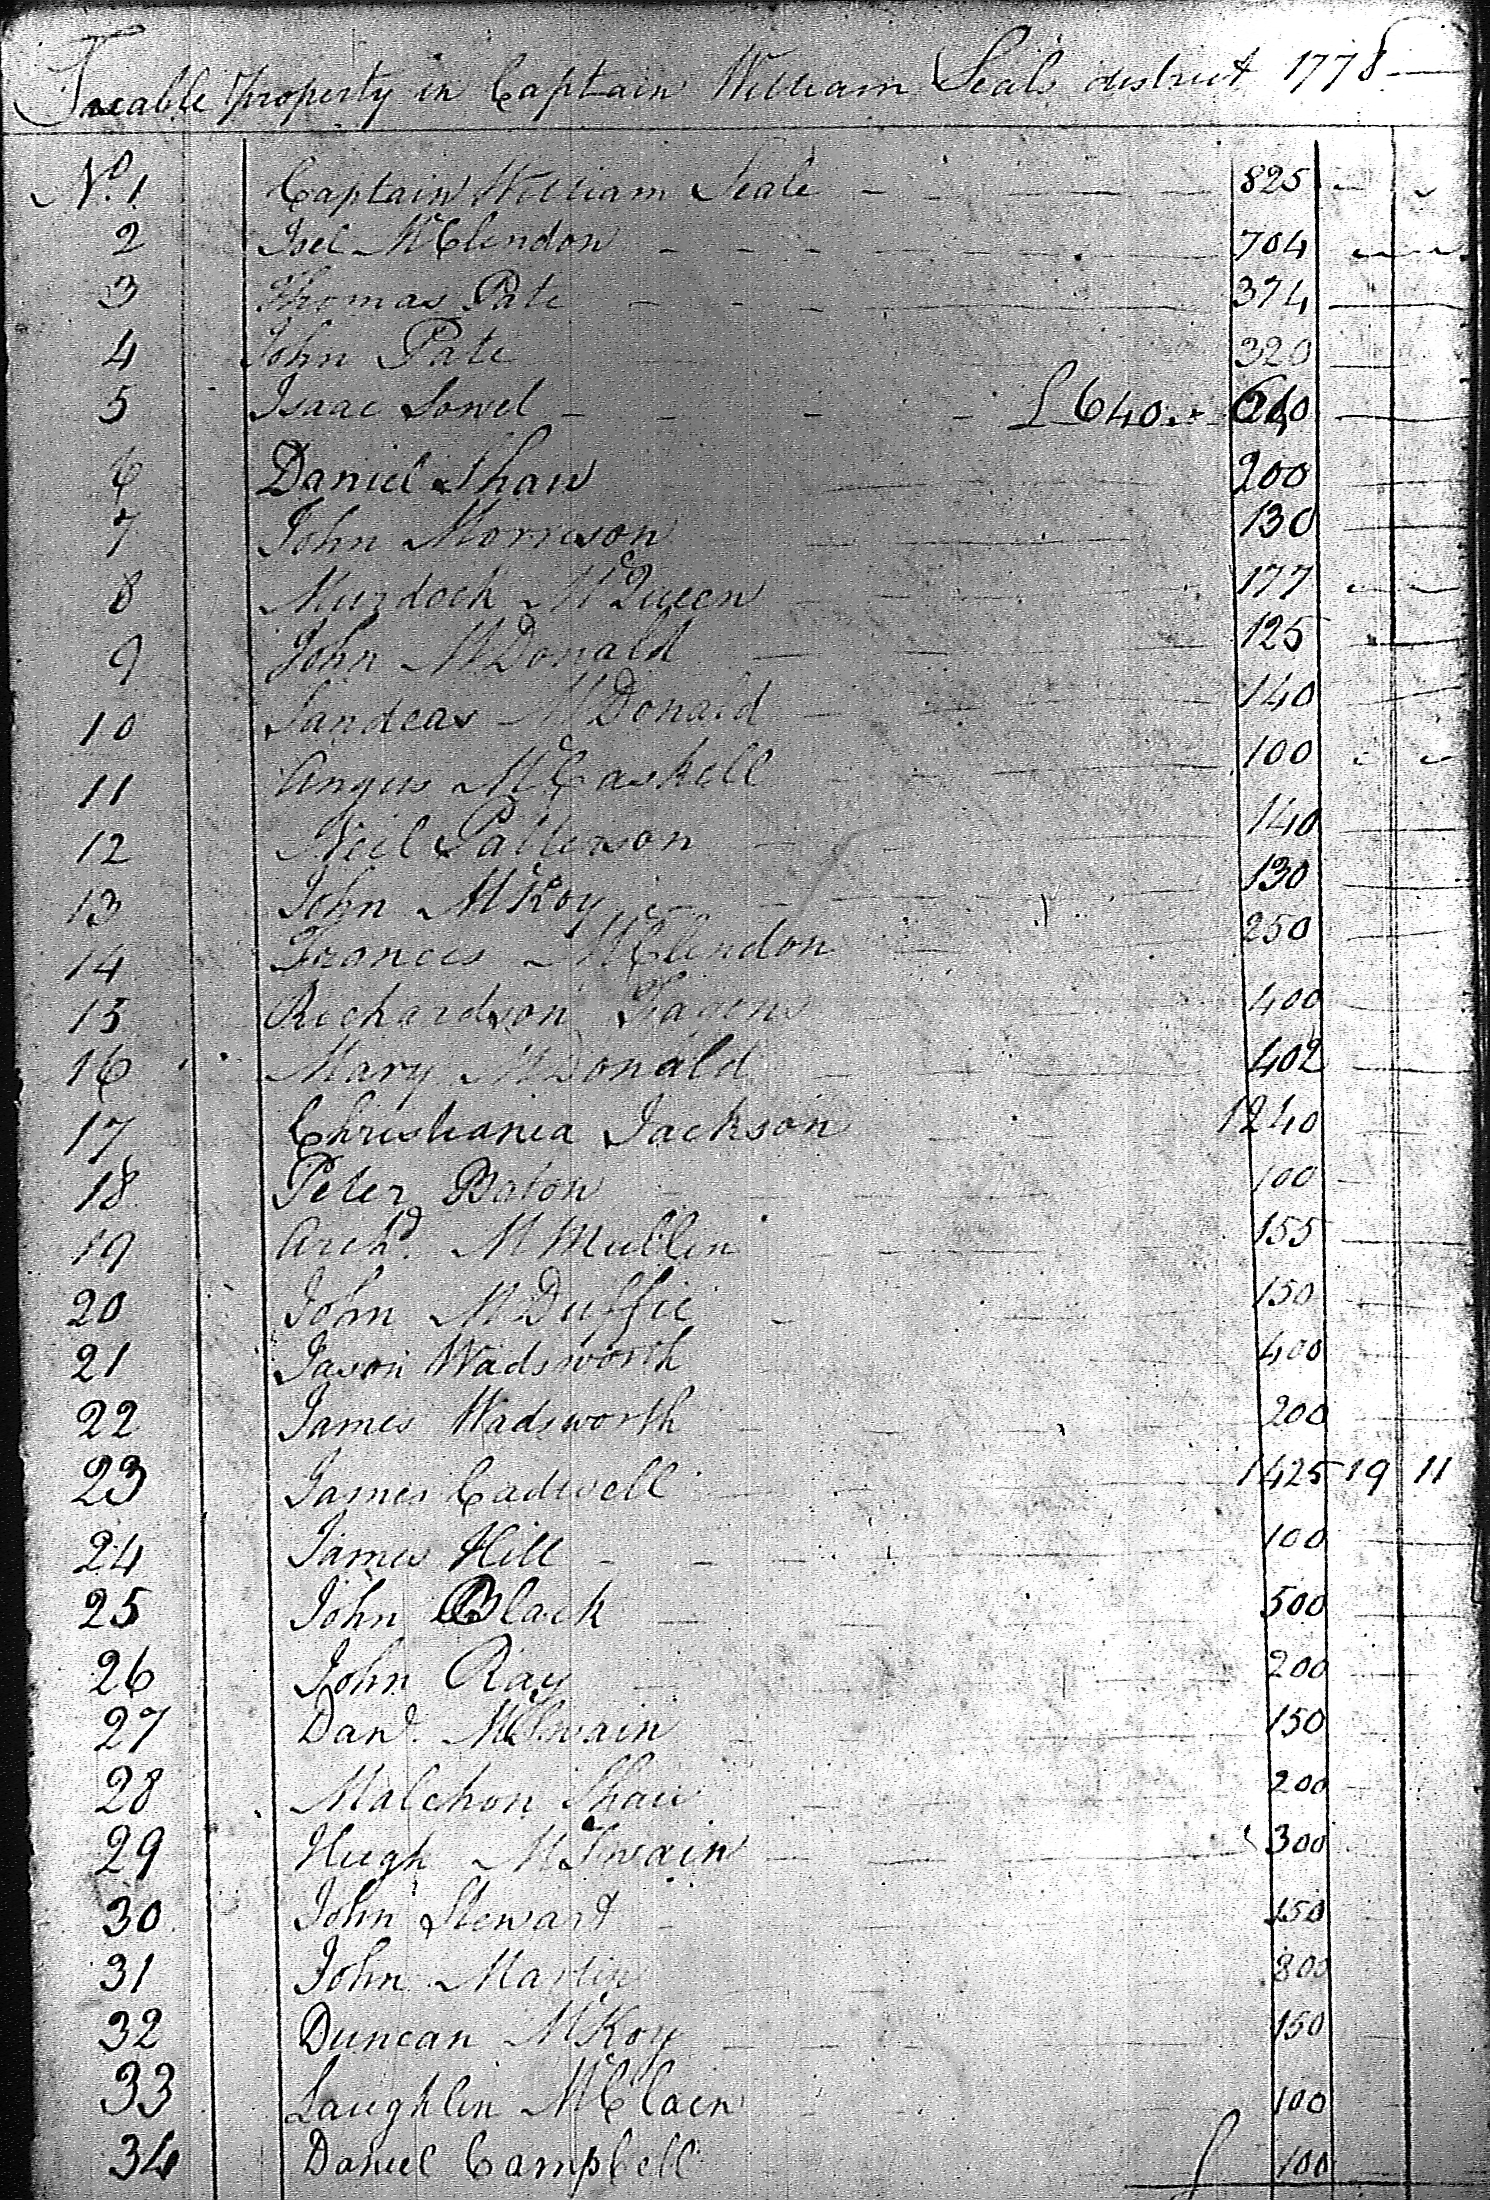 Taxable property in Captain William Seals district 1778
No. 1 Captain William Seale 825
2 Joel McClendon 704
3 Thomas Pate 374
4 John Pate 320
5 Isaac Sowel £ 640 640
6 Daniel Shaw 200
7 John Morrison 130
8 Murdoch McQueen 177
9 John McDonald 125
10 McDonald 140
11 Angus McCaskell 100
12 Neil Patterson 140
13 John McKoy 130
14 Frances McClendon 250
15 Richardson 400
16 Mary McDonald 402
17 Christiania Jackson 1240
18 Peter Baton 100
19 Archd. McMullin 155
20 John McDuffie 150
21 Jason Wadsworth 400
22 James Wadsworth 200
23 James Cadwell 1425 19 11
24 James Hill 100
25 John Black 500
26 John Ray 200
27 Danl. McSwain 150
28 Malchon Shaw 200
29 Hugh McSwain 300
30 John Steward 150
31 John Martin 300
32 Duncan McKoy 150
33 Laughlin McClain 100
34 Daniel Campbell £ 100